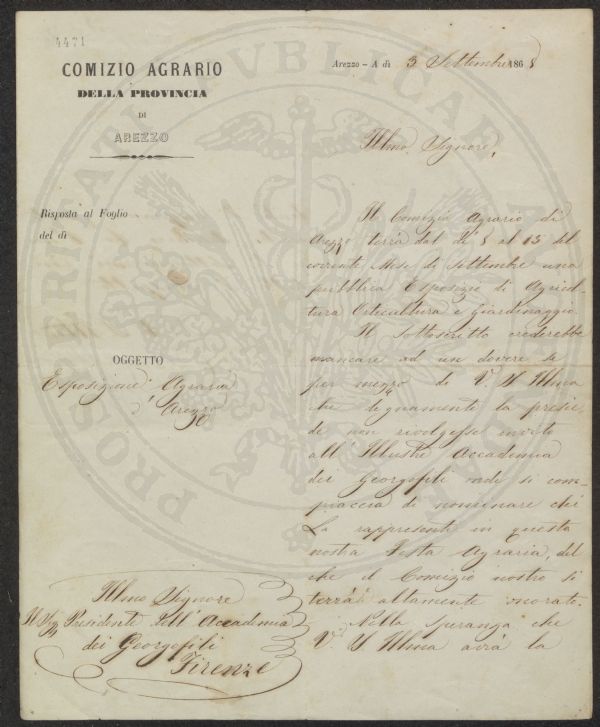 4471
COMIZIO AGRARIO
DELLA PROVINCIA
DI
AREZZO
Arezzo - A dì 3 Settembre 1868
Illmo Signore,
Risposta al Foglio
del dì
OGGETTO
Esposizione Agraria
d' Arezzo
Il Comizio Agrario di
Arezzo terrà dal dì 8 al 13 del
corrente Mese di Settembre una
pubblica Esposizio di Agricol-
tura Orticultura e Giardinaggio.
Il Sottoscritto crederebbe
mancare ad un dovere se
per mezzo di V. S. Illma
che degnamente la presie
de non rivolgesse invito
all' Illustre Accademia
dei Georgofili onde si com-
piaccia di nominare chi
La rappresenti in questa
nostra Festa Agraria, del
che il Comizio nostro si
terrà altamente onorato.
Nella speranza che
V. S Illma avrà la
Illmo Signore
Il Sig Presidente dell' Accademia
dei Georgofili
Firenze
PROSPERITATI PUBLICAE AUGENDAE